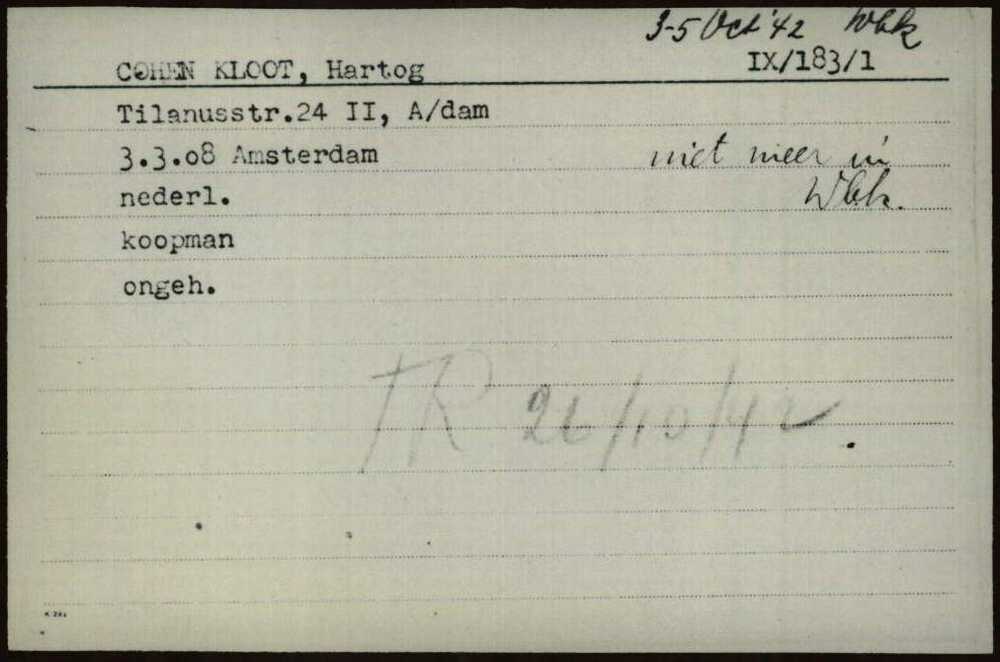 3-5 Oct '42 Wbk
IX/183/1
COHEN KLOOT, Hartog
Tilanusstr.24 II, A/dam
3.3.08 Amsterdam
niet meer in
Wbk.
nederl.
koopman
ongeh.
TR 26/10/42